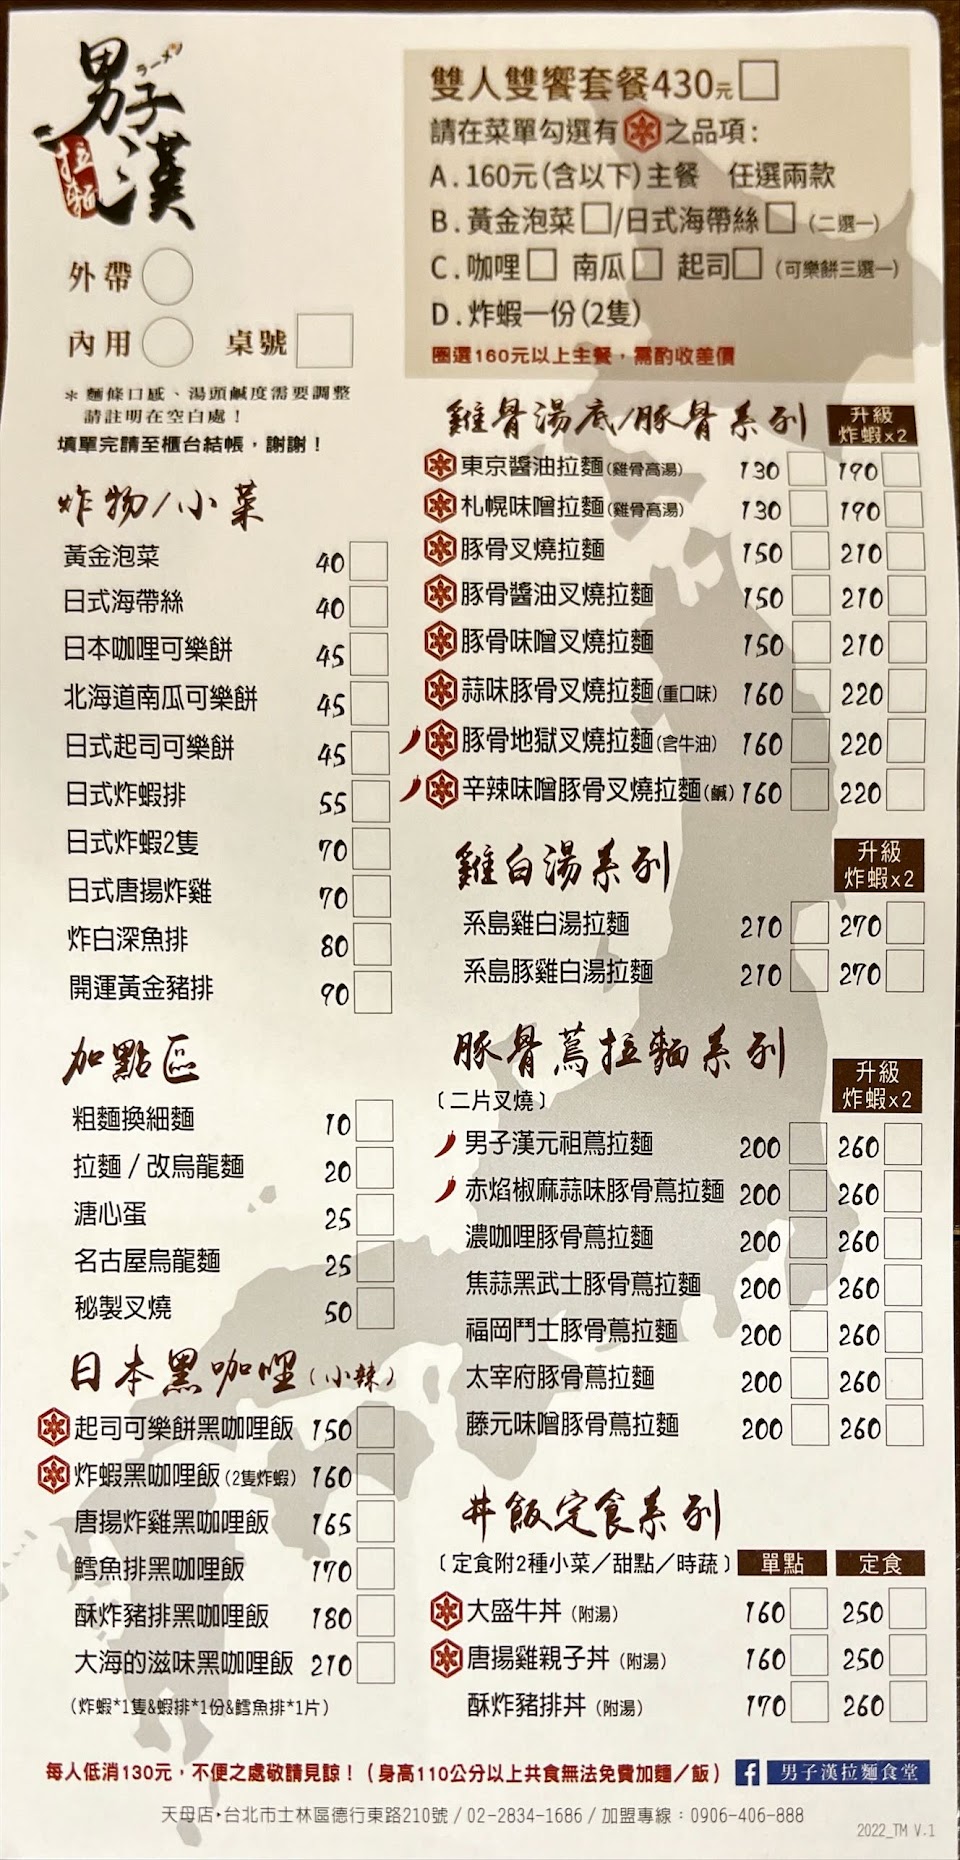 男子漢
ラーメン
拉麵
外帶
內用 桌號
＊麵條口感、湯頭鹹度需要調整
請註明在空白處！
填單完請至櫃台結帳，謝謝！
雙人雙饗套餐430元
請在菜單勾選有之品項：
A.160元(含以下)主餐 任選兩款
B.黃金泡菜 /日式海帶絲 (二選一)
C.咖哩 南瓜 起司 (可樂餅三選一)
D.炸蝦一份(2隻)
圈選160元以上主餐，需酌收差價
炸物/小菜
黃金泡菜 40
日式海帶絲 40
日本咖哩可樂餅 45
北海道南瓜可樂餅 45
日式起司可樂餅 45
日式炸蝦排 55
日式炸蝦2隻 70
日式唐揚炸雞 70
炸白深魚排 80
開運黃金豬排 90
加點區
粗麵換細麵 10
拉麵/改烏龍麵 20
溏心蛋 25
名古屋烏龍麵 25
秘製叉燒 50
日本黑咖哩(小辣)
起司可樂餅黑咖哩飯 150
炸蝦黑咖哩飯(2隻炸蝦) 160
唐揚炸雞黑咖哩飯 165
鱈魚排黑咖哩飯 170
酥炸豬排黑咖哩飯 180
大海的滋味黑咖哩飯 210
(炸蝦*1隻&蝦排*1份&鱈魚排*1片)
雞骨湯底/豚骨系列 升級炸蝦x2
東京醬油拉麵(雞骨高湯) 130 190
札幌味噌拉麵(雞骨高湯) 130 190
豚骨叉燒拉麵 150 210
豚骨醬油叉燒拉麵 150 210
豚骨味噌叉燒拉麵 150 210
蒜味豚骨叉燒拉麵(重口味) 160 220
豚骨地獄叉燒拉麵(含牛油) 160 220
辛辣味噌豚骨叉燒拉麵(鹹) 160 220
雞白湯系列 升級炸蝦x2
系島雞白湯拉麵 210 270
系島豚雞白湯拉麵 210 270
豚骨蔦拉麵系列 升級炸蝦x2
〔二片叉燒〕
男子漢元祖蔦拉麵 200 260
赤焰椒麻蒜味豚骨蔦拉麵 200 260
濃咖哩豚骨蔦拉麵 200 260
焦蒜黑武士豚骨蔦拉麵 200 260
福岡鬥士豚骨蔦拉麵 200 260
太宰府豚骨蔦拉麵 200 260
藤元味噌豚骨蔦拉麵 200 260
丼飯定食系列
〔定食附2種小菜／甜點／時蔬〕 單點 定食
大盛牛丼(附湯) 160 250
唐揚雞親子丼(附湯) 160 250
酥炸豬排丼(附湯) 170 260
每人低消130元，不便之處敬請見諒！（身高110公分以上共食無法免費加麵／飯）
f 男子漢拉麵食堂
天母店•台北市士林區德行東路210號 / 02-2834-1686 / 加盟專線：0906-406-888
2022_TM V.1